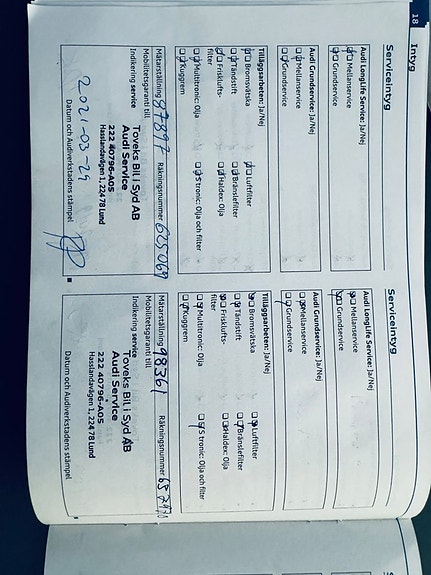 18
Intyg
Serviceintyg
Audi LongLife Service: Ja/Nej
Mellanservice
Grundservice
Audi Grundservice: Ja/Nej
Mellanservice
Grundservice
Tilläggsarbeten: Ja/Nej
Bromsvätska
Luftfilter
Tändstift
Bränslefilter
Friskluftsfilter
Haldex: Olja
Multitronic: Olja
S tronic: Olja och filter
Kuggrem
Mätarställning 87897 Räkningsnummer 625069
Mobilitetsgaranti till
Indikering service
Toveks Bil i Syd AB
Audi Service
222 40796-A05
Hasslandavägen 1, 224 78 Lund
2021-03-29
Datum och Audiverkstadens stämpel
Serviceintyg
Audi LongLife Service: Ja/Nej
Mellanservice
Grundservice
Audi Grundservice: Ja/Nej
Mellanservice
Grundservice
Tilläggsarbeten: Ja/Nej
Bromsvätska
Luftfilter
Tändstift
Bränslefilter
Friskluftsfilter
Haldex: Olja
Multitronic: Olja
S tronic: Olja och filter
Kuggrem
Mätarställning 98361 Räkningsnummer
Mobilitetsgaranti till
Indikering service
Toveks Bil i Syd AB
Audi Service
222 40796-A05
Hasslandavägen 1, 224 78 Lund
Datum och Audiverkstadens stämpel